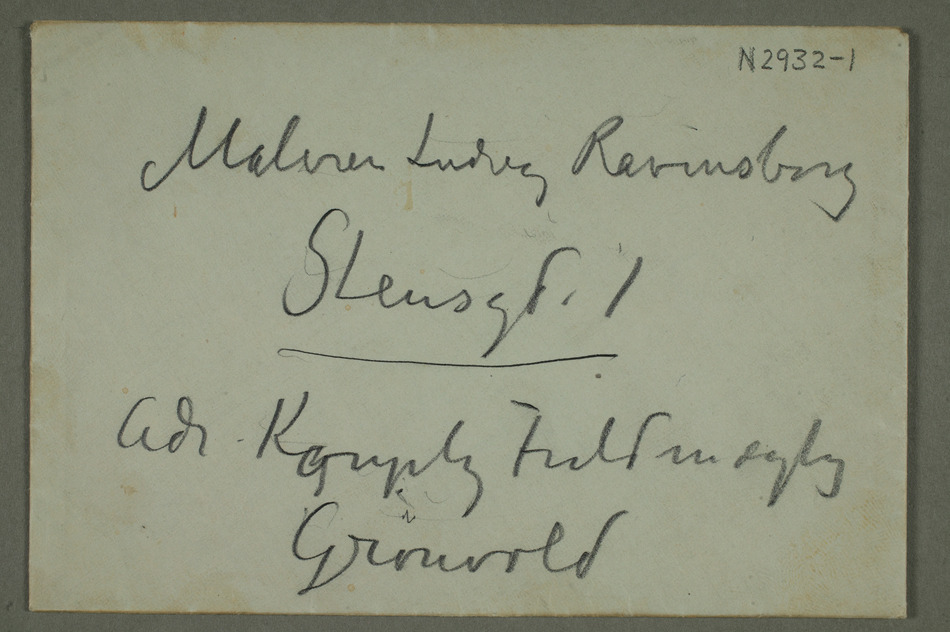 N2932-1
Maleren Ludvig Ravensberg
Stensgt. 1
Adr.
Grönvold